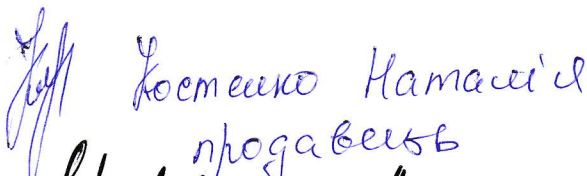 Костенко Наталія
продавець